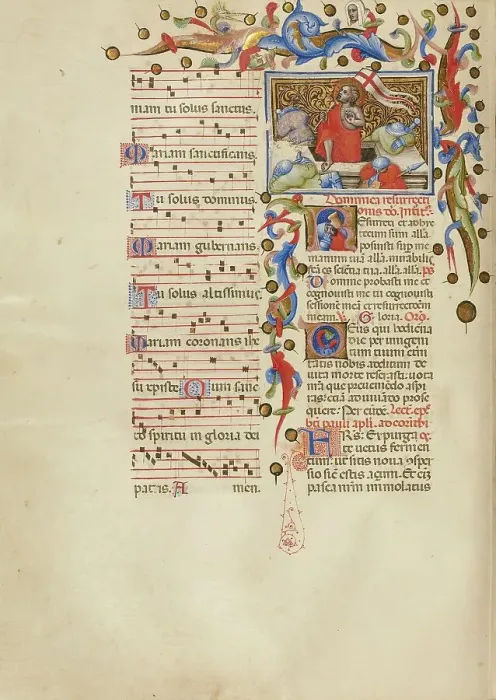 mam tu solus sanctus.
Mariam sanctificans.
Tu solus dominus.
Mariam gubernans.
Tu solus altissimus.
Mariam coronans ihe
su xpiste Cum sanc
to spiritu in gloria dei
patris. A men.
Dominica resurrecti
onis dni. Introit.
Resurrexi et adhuc
tecum sum alla.
posuisti sup me
manum tuā allā. mirabilis
fctā ēs scīētia tua. allā. allā. ps
Domine probasti me et
cognovisti me tu cognovisti
sessionē meā et resurrectōem
meam. V. Gloria. Oro.
Deus qui hodierna
die per unigeni
tum tuum eterni
tatis nobis aditum de
victa morte reserasti. vota
nra que preveniendo aspi
ras. etiā adiuvando prose
quere. Per eundē. Lect. epl
beati pauli apli. ad corinthi
FRS. Expurga
te vetus fermen
tum. ut sitis nova 9sper
sio sic estis açimi. Et eīz
pasca nrm immolatus